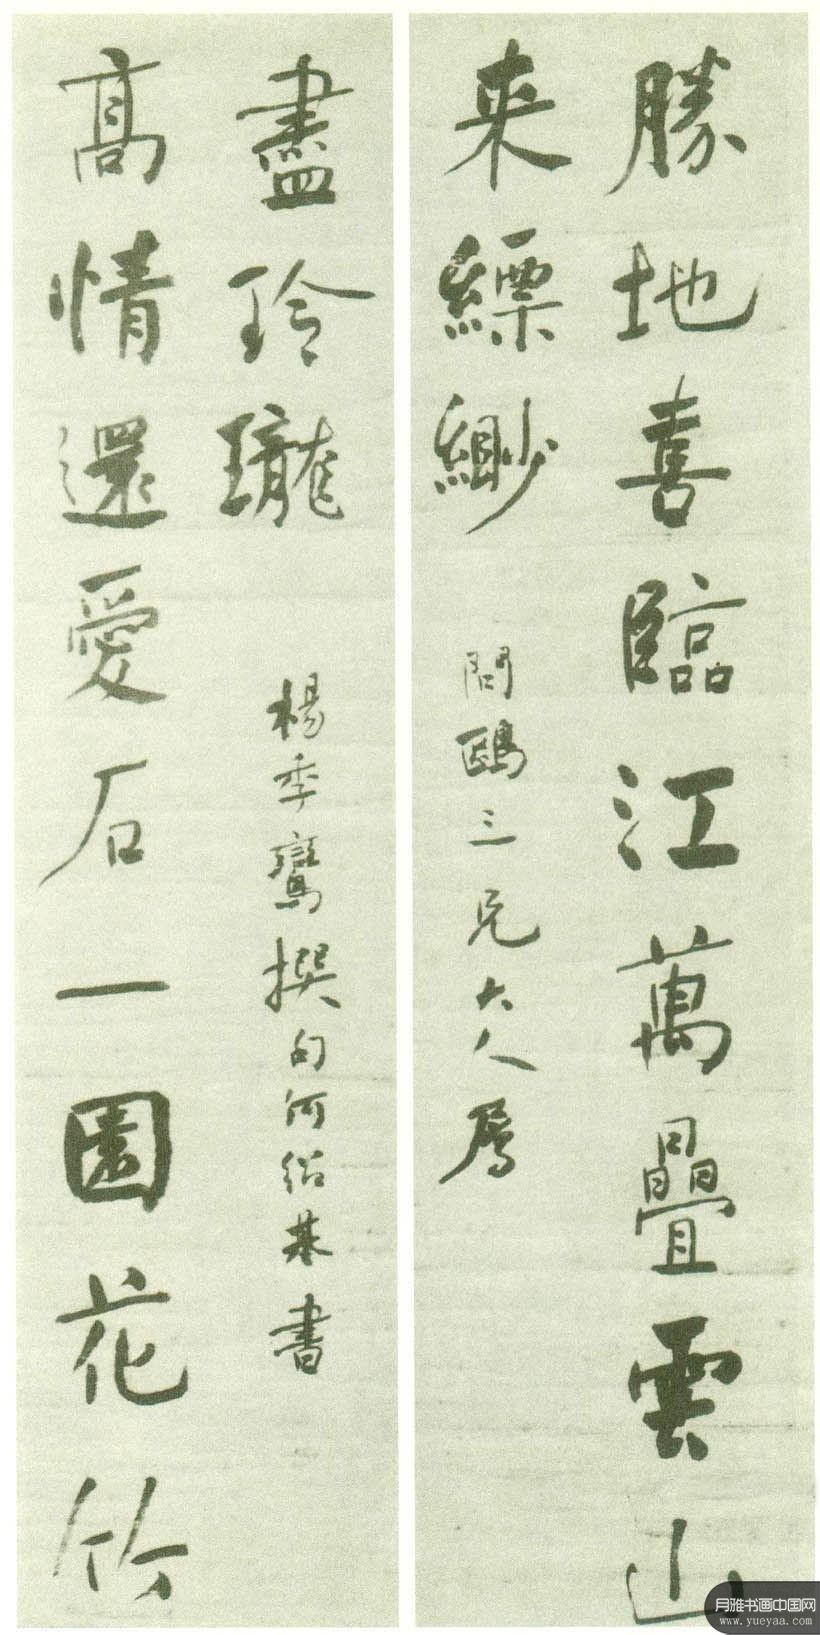 勝地喜臨江萬疊雲山
来縹緲
問鷗三兄大人屬
高情還愛石一園花竹
盡玲瓏
楊季鸞撰句何紹基書
月雅书画中国网
www.yueyaa.com